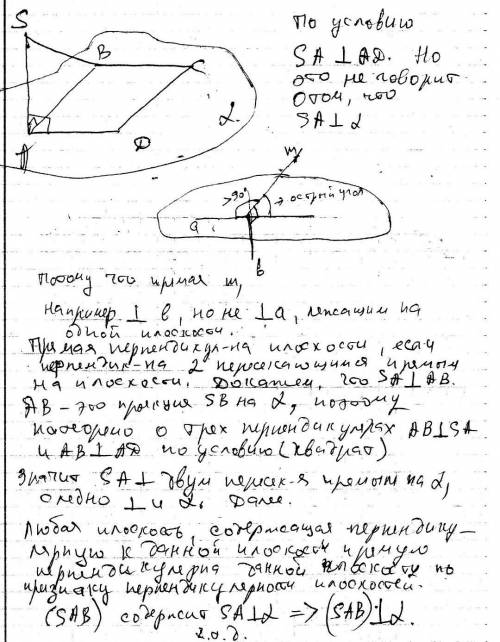 S
B
C
A
D
α
По условию
SA⊥AD. Но
это не говорит
о том, что
SA⊥α
m
>90°
острый угол
a
b
Потому что прямая m,
например ⊥ b, но не ⊥a, лежащим на
одной плоскости.
Прямая перпендикул-на плоскости, если
перпендик-на 2 пересекающимся прямым
на плоскости. Докажем, что SA⊥AB.
AB - это проекция SB на α, поэтому
по теореме о трех перпендикулярах AB⊥SA
и AB⊥AD по условию (квадрат)
Значит SA⊥ двум пересек-я прямым на α,
следно ⊥ и α. Далее.
Любая плоскость, содержащая перпендику-
лярную к данной плоскости прямую
перпендикулярна данной плоскости по
признаку перпендикулярности плоскостей.
(SAB) содержит SA⊥α => (SAB)⊥α.
ч.т.д.